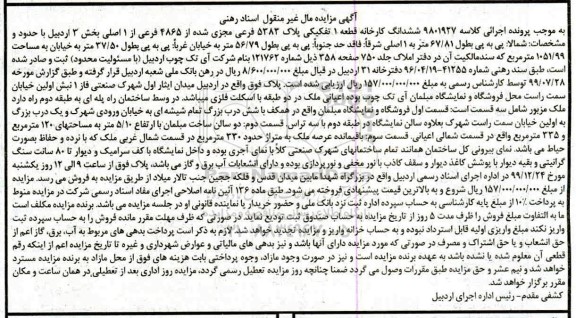 آگهی مزایده مال غیر منقول اسناد رهنی
به موجب پرونده اجرائی کلاسه ۹۸۰۱۹۲۷ ششدانگ کارخانه قطعه ۱ تفکیکی پلاک ۵۳۸۳ فرعی مجزی شده از ۴۸۶۵ فرعی از ۱ اصلی بخش ۳ اردبیل با حدود و
مشخصات: شمالا: پی به پی بطول ۶۷/۸۱ متر به ۱ اصلی شرقاً: فاقد حد جنوباً: پی به پی بطول ۵۶/۷۹ متر به خیابان غرباً: پی به پی بطول ۳۷/۵۰ متر به خیابان به مساحت
۱۰۵۱/۹۹ مترمربع که سندمالکیت آن در دفتر املاک جلد ۷۵۰ صفحه ۳۵۸ ذیل شماره ۱۲۱۷۶۲ بنام شرکت آی تک چوب اردبیل (با مسئولیت محدود) ثبت و صادر شده
است، طبق سند رهنی شماره ۴۱۲۵۵-۹۶/۰۴/۱۹ دفترخانه ۳۱ اردبیل در قبال مبلغ ۸/۶۰۰/۰۰۰/۰۰۰ ریال در رهن بانک ملی شعبه اردبیل قرار گرفته و طبق گزارش مورخه
۹۹/۰۷/۲۸ توسط کارشناس رسمی به مبلغ ۱۵۷/۰۰۰/۰۰۰/۰۰۰ ریال ارزیابی شده است. پلاک فوق واقع در اردبیل میدان ایثار اول شهرک صنعتی فاز ۱ نبش اولین خیابان
سمت راست محل فروشگاه و نمایشگاه مبلمان آی تک چوب بوده اعیانی ملک در دو طبقه با اسکلت فلزی میباشد. در وسط ساختمان راه پله ای به طبقه دوم راه دارد
ملک مزبور شامل سه قسمت است: قسمت اول فروشگاه و نمایشگاه مبلمان واقع در همکف با شش درب بزرگ تمام شیشه ای به خیابان ورودی شهرک و یک درب بزرگ
به اولین خیابان سمت راست شهرک بعلاوه سالن نمایشگاه در طبقه دوم با سه تراس قسمت دوم: دو سالن ساخت مبلمان با ارتفاع ۵/۱۰ متر به مساحتهای ۱۲۰ مترمربع
و ۲۳۵ مترمربع واقع در قسمت شمالی اعیانی. قسمت سوم: باقیمانده عرصه ملک به متراژ حدود ۳۳۰ مترمربع در قسمت شمال غربی ملک که با نرده و حفاظ بصورت
حیاط می باشد. نمای بیرونی کل ساختمان همانند تمام ساختمانهای شهرک صنعتی کلاً با نمای آجری بوده و داخل نمایشگاه با کف سرامیک و دیوار تا ۸۰ سانت سنگ
گرانیتی و بقیه دیوار با پوشش کاغذ دیواری و سقف کاذب با نور مخفی و نورپردازی بوده و دارای انشعابات آب برق و گاز می باشد، پلاک فوق از ساعت ۹ الی ۱۲ روز یکشنبه
مورخ ۹۹/۱۲/۲۴ در اداره اجرای اسناد رسمی اردبیل واقع در بزرگراه شهدا مابین میدان قدس و فلکه ججین جنب تالار میلاد از طریق مزایده به فروش می رسد. مزایده
از مبلغ ۱۵۷/۰۰۰/۰۰۰/۰۰۰ ریال شروع و به بالاترین قیمت پیشنهادی فروخته می شود. طبق ماده ۱۳۶ آئین نامه اصلاحی اجرای مفاد اسناد رسمی شرکت در مزایده منوط
به پرداخت ۱۰٪ از مبلغ پایه کارشناسی به حساب سپرده اداره ثبت نزد بانک ملی و حضور خریدار یا نماینده قانونی او در جلسه مزایده می باشد. برنده مزایده مکلف است
ما به التفاوت مبلغ فروش را ظرف مدت ۵ روز از تاریخ مزایده به حساب صندوق ثبت تودیع نماید در صورتی که ظرف مهلت مقرر مانده فروش را به حساب سپرده ثبت
واریز نکند مبلغ واریزی اولیه قابل استرداد نبوده و به حساب خزانه واریز و مزایده تجدید خواهد شد. لازم به ذکر است پرداخت بدهی های مربوط به آب، برق، گاز اعم از
حق انشعاب و یا حق اشتراک و مصرف در صورتی که مورد مزایده دارای آنها باشد و نیز بدهی های مالیاتی و عوارض شهرداری و غیره تا تاریخ مزایده اعم از اینکه رقم
قطعی آن معلوم شده یا نشده باشد به عهده برنده مزایده است و نیز در صورت وجود مازاد، وجوه پرداختی بابت هزینه های فوق از محل مازاد به برنده مزایده مسترد
خواهد شد و نیم عشر و حق مزایده طبق مقررات وصول می گردد ضمنا چنانچه روز مزایده تعطیل رسمی گردد، مزایده روز اداری بعد از تعطیلی در همان ساعت و مکان
مقرر برگزار خواهد شد.
کشفی مقدم- رئیس اداره اجرای اردبیل